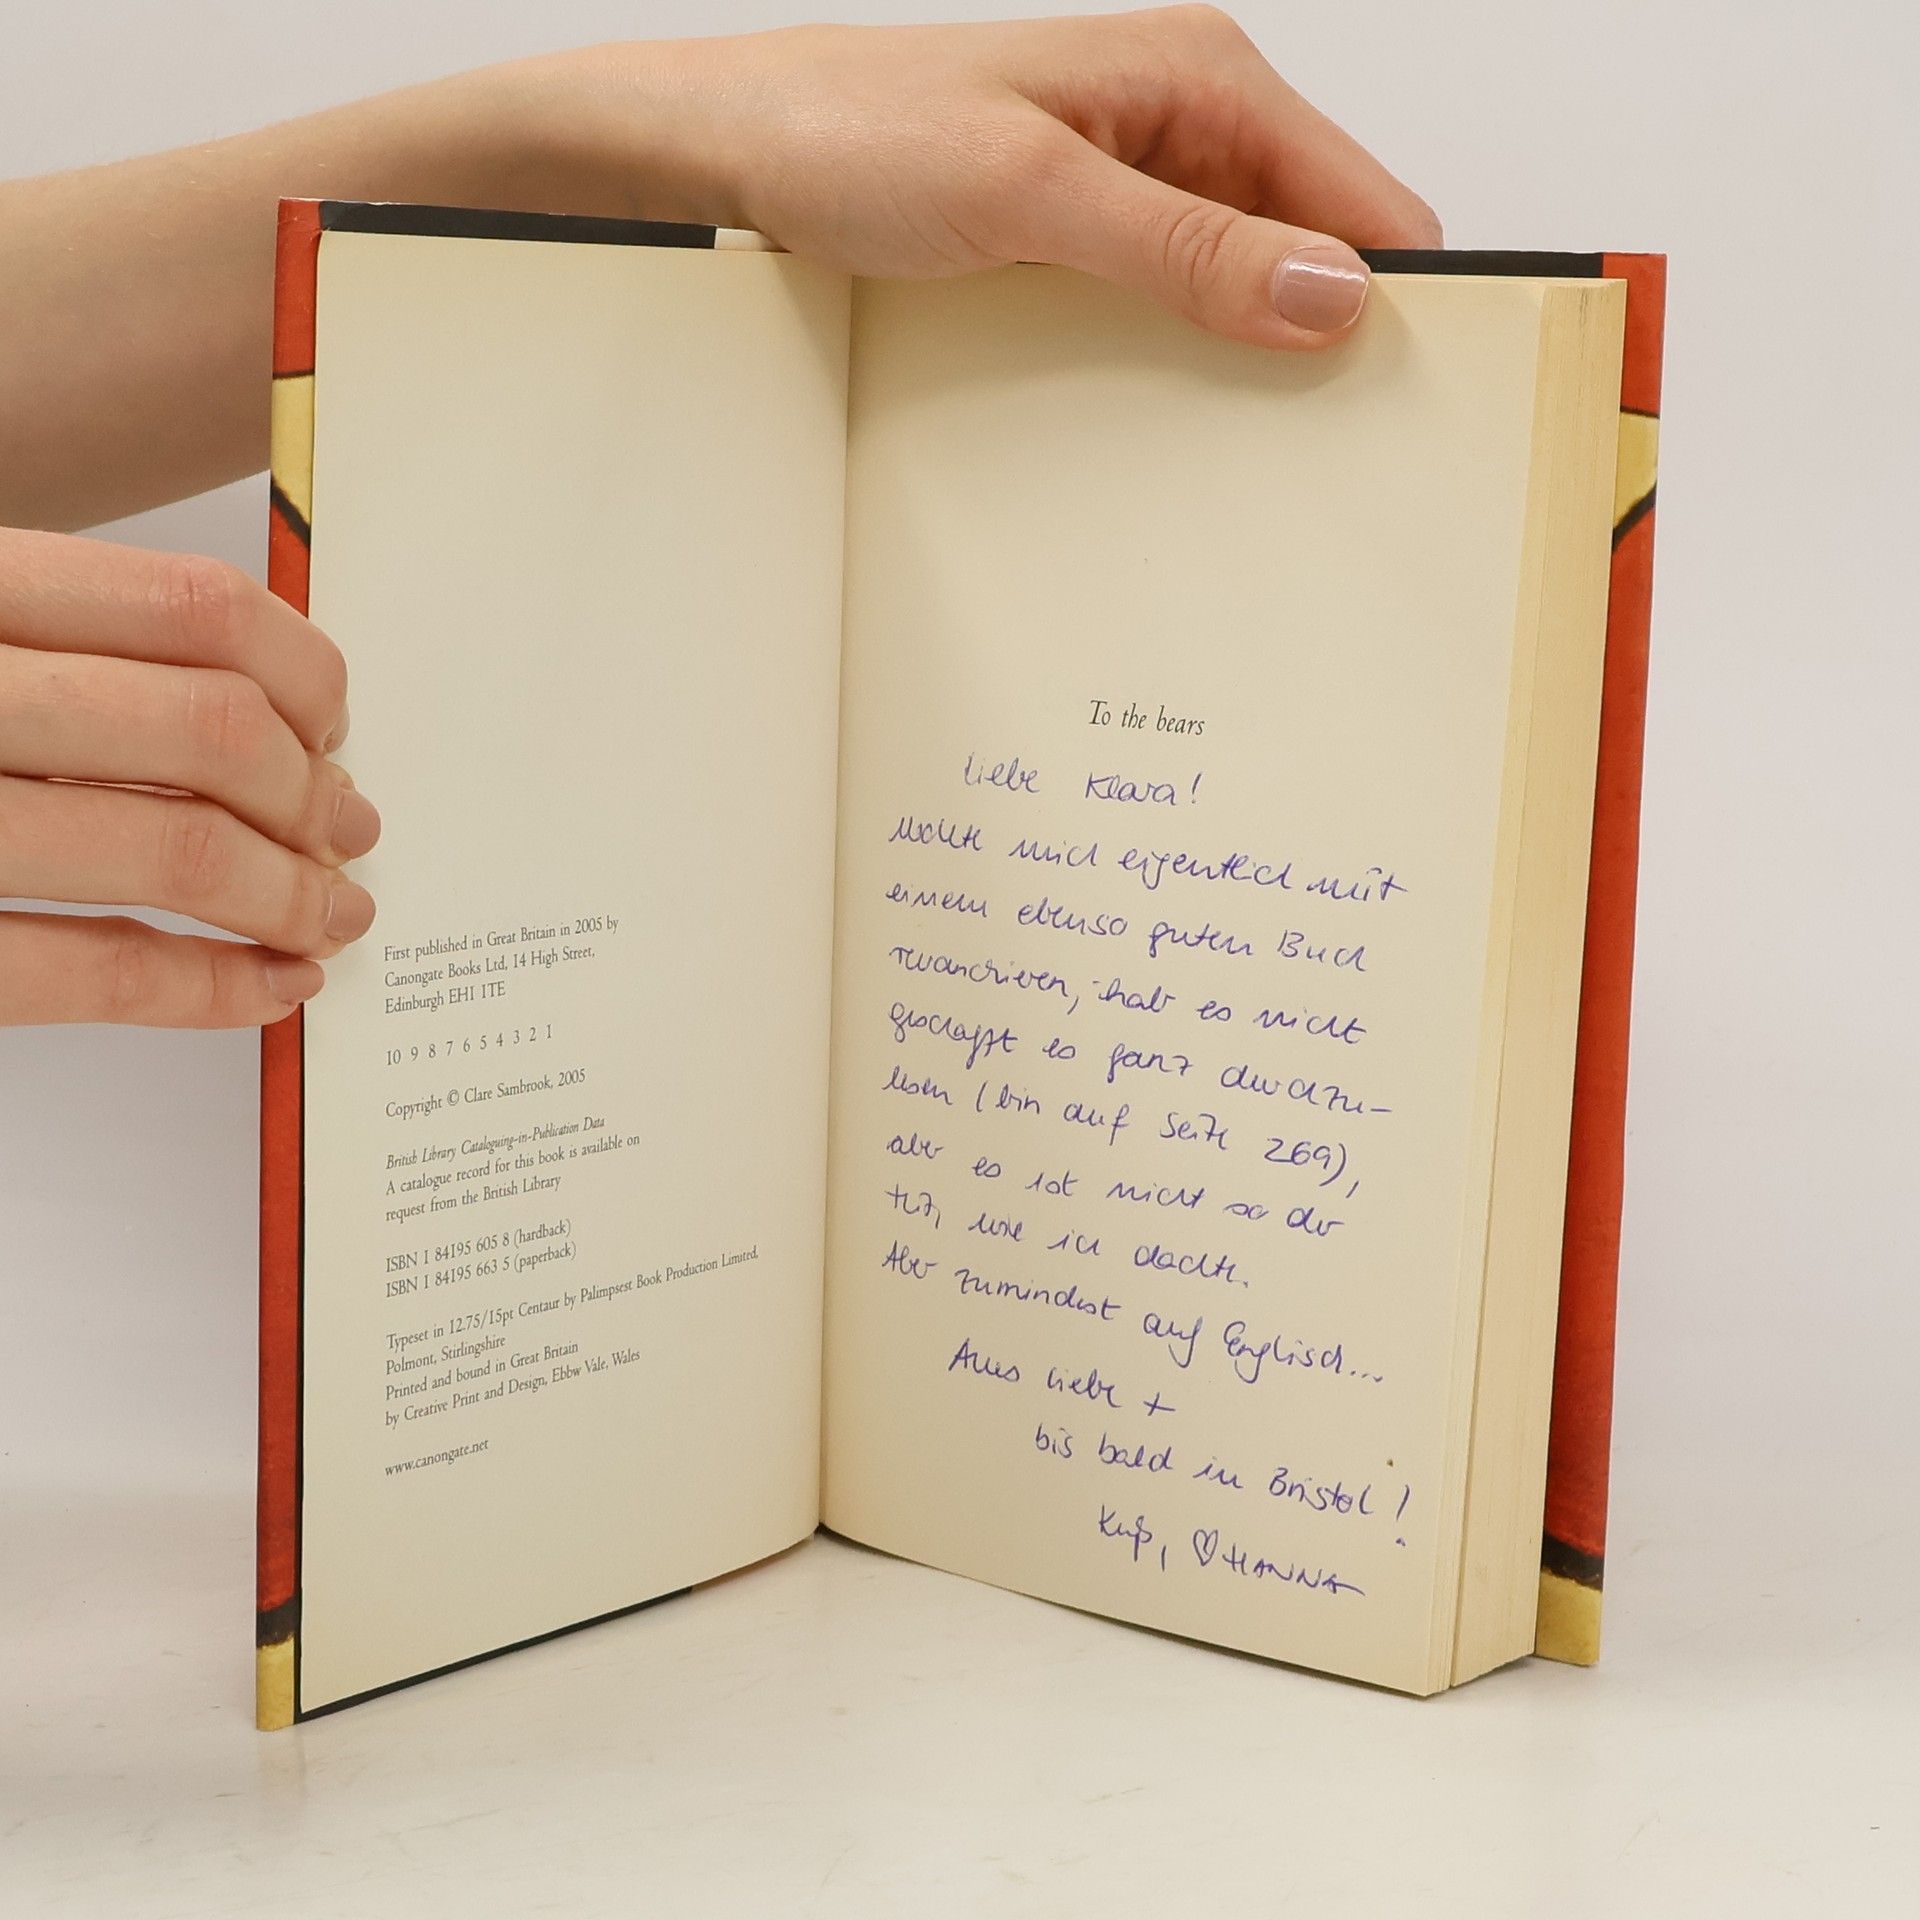 First published in Great Britain in 2005 by
Canongate Books Ltd, 14 High Street,
Edinburgh EH1 1TE
10 9 8 7 6 5 4 3 2 1
Copyright © Clare Sambrook, 2005
British Library Cataloguing-in-Publication Data
A catalogue record for this book is available on
request from the British Library
ISBN 1 84195 605 8 (hardback)
ISBN 1 84195 663 5 (paperback)
Typeset in 12.75/15pt Centaur by Palimpsest Book Production Limited,
Polmont, Stirlingshire
Printed and bound in Great Britain
by Creative Print and Design, Ebbw Vale, Wales
www.canongate.net
To the bears
Liebe Klara!
Möchte mich eigentlich mit
einem ebenso guten Buch
revanchieren, hab es nicht
geschafft es ganz durchzu-
lesen (bin auf Seite 269),
aber es ist nicht so der
Hit, wie ich dachte.
Aber zumindest auf Englisch...
Alles Liebe +
bis bald in Bristol!
Kuß, ♡ HANNA